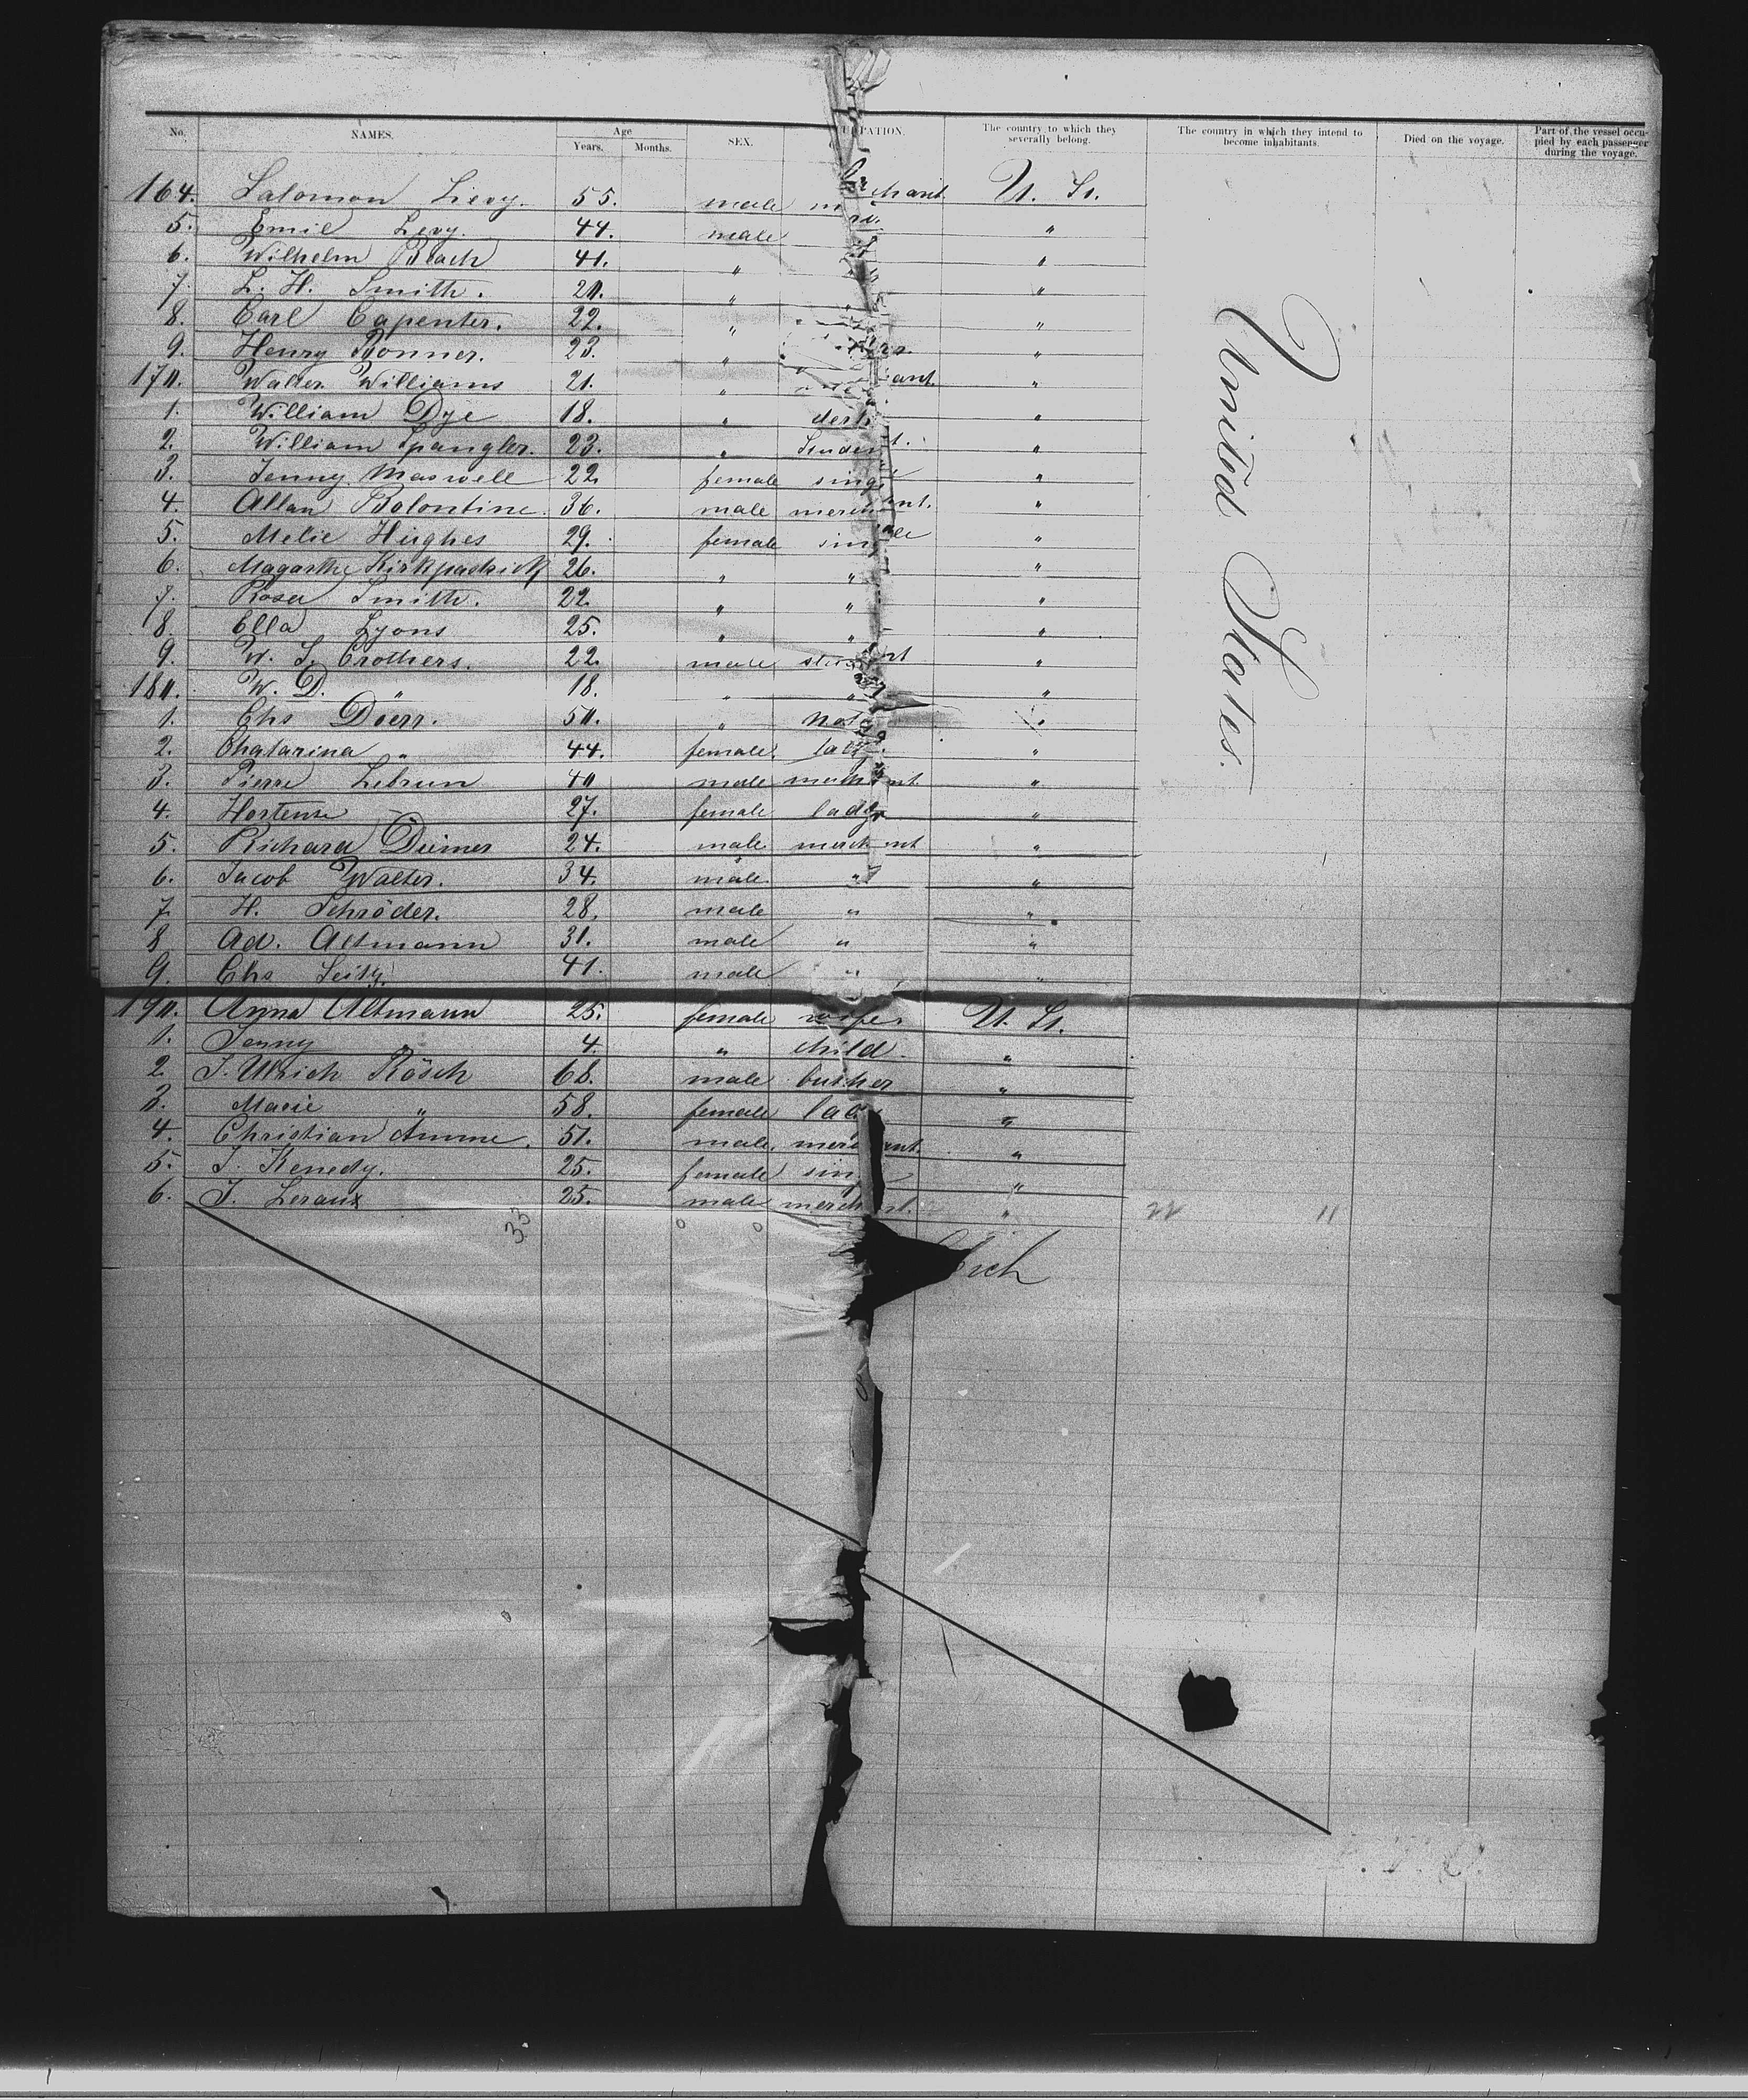 No. NAMES. Age Years. Months. SEX. The country to which they severally belong. The country in which they intend to become inhabitants. Died on the voyage. Part of the vessel occupied by each passenger during the voyage.
164. Salomon Levy. 55. male U. St.
5. Emil Levy. 44. male "
6. Wilhelm 41. " "
7. L. H. Smith. " "
8. Earl Capenter. 22. " "
9. Henry Bonner. 23. " "
170. Walter Williams 21. " "
1. William Dye 18. " "
2. William Spangler. 23. " "
3. Jenny Maxwell 22 female "
4. Allan Bolontine. 36. male "
5. Melie Hughes 29. female "
6. Magarthe Kirkpadrick 26. " " "
7. Rosa Smith. 22. " " "
8. Ella Lyons 25. " " "
9. W. S. Crothers. 22. male "
180. W. D. " 18. " " "
1. Chs Doerr. 50. " "
2. Chatarina " 44. female. lady "
3. Pierre Lebrun 40 male "
4. Hortense 27. female lady "
5. Richard Diemer 24. male "
6. Jacob Walter. 34. male. " "
7. H. Schröder. 28. male " "
8 Ad. Altmann 31. male " "
9. Chs Seitz. 41. male " "
190. Anna Altmann 25. female wife. U. St.
1. Jenny " 4. " child. "
2. J. Ulrich Rösch 68. male "
3. Marie " 58. female "
4. Christian Amme. 51. male. "
5. J. Kenedy. 25. female "
6. J. Leraux 25. male "
United States.
33
22 11